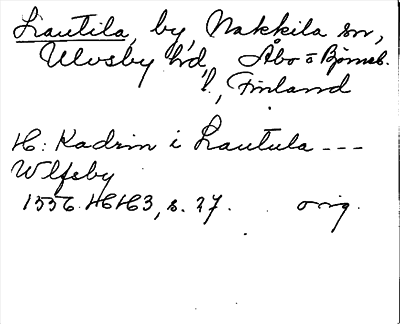 Lautila, by, Nakkila sn,
Ulvsby hd, Åbo o Björneb.
l., Finland
H: Kadrin i Lautula ---
Wlfsby
1556 HH3, s. 27. orig.